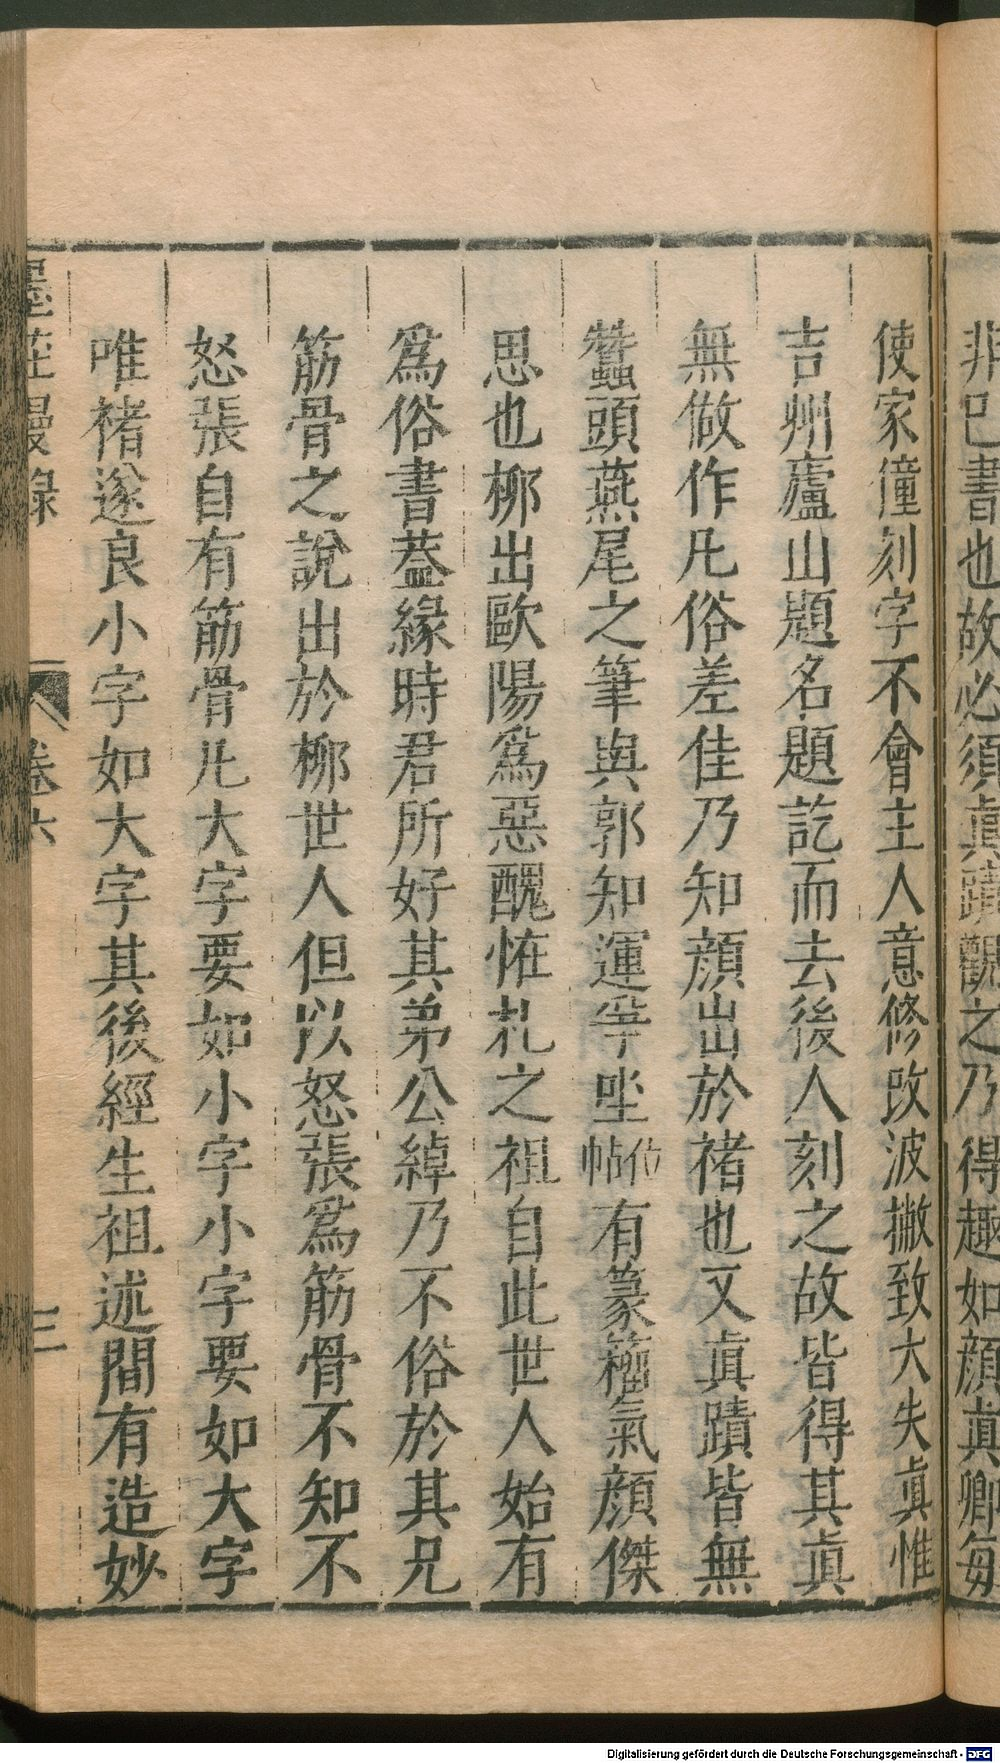 非已書也故必須眞蹟觀之乃得趣如顔眞卿每
使家僮刻字不會主人意修改波撇致大失眞惟
吉州廬山題名題訖而去後人刻之故皆得其眞
無做作凡俗差佳乃知顔出於褚也又眞蹟皆無
蠶頭燕尾之筆與郭知運爭坐位帖有篆籀氣顔傑
思也柳出歐陽爲惡醜怪札之祖自此世人始有
爲俗書蓋緣時君所好其弟公綽乃不俗於其兄
筋骨之說出於柳世人但以怒張爲筋骨不知不
怒張自有筋骨凡大字要如小字小字要如大字
唯褚遂良小字如大字其後經生祖述間有造妙
墨莊漫錄 卷六 三
Digitalisierung gefördert durch die Deutsche Forschungsgemeinschaft - DFG